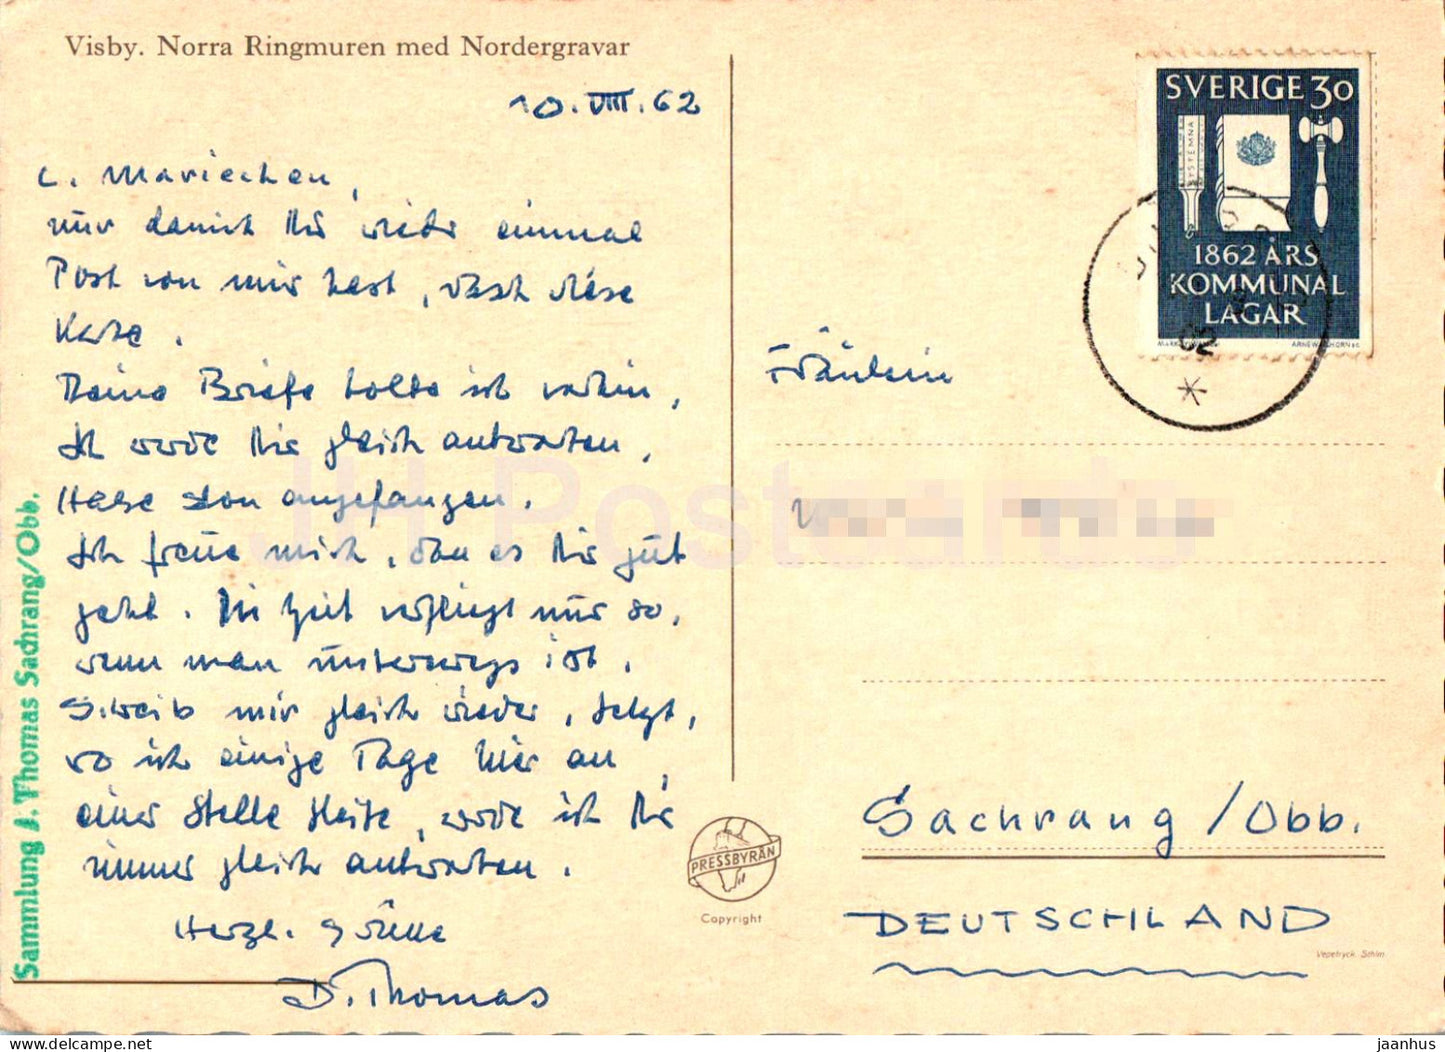 Visby. Norra Ringmuren med Nordergravar
10.VIII.62
L. Mariechen,
nur damit Du wieder einmal
Post von mir hast, rasch diese
Karte.
Deine Briefe holte ich vorhin,
Ich werde Dir gleich antworten,
Habe schon angefangen.
Ich freue mich, dass es Dir gut
geht. Die Zeit verfliegt nur so,
wenn man unterwegs ist.
Schreib mir gleich wieder,
wo ich einige Tage hier an
einer Stelle bleibe, werde ich Dir
immer gleich antworten.
Herzl. Grüße
D. Thomas
Sammlung J. Thomas Sachrang/Obb.
SVERIGE 30
SYSTEMNA
1862 ÅRS
KOMMUNAL
LAGAR
62
Fräulein
Sachrang/Obb.
DEUTSCHLAND
PRESSBYRÅN
Copyright
Vepetryck Sthlm
JH Postcards
www.delcampe.net
jaanhus